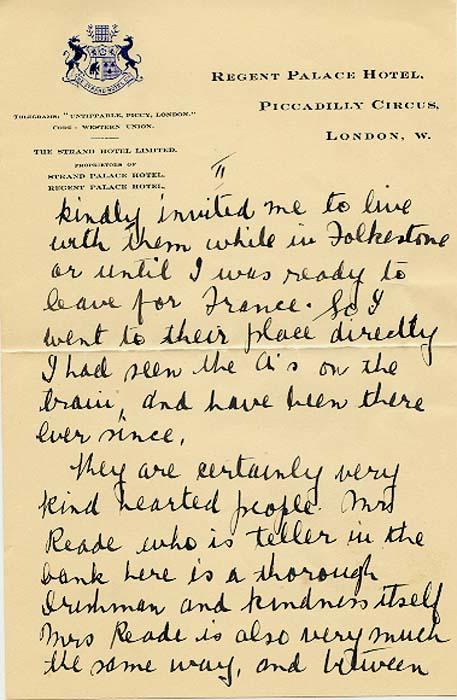 REGENT PALACE HOTEL,
PICCADILLY CIRCUS,
LONDON, W.
TELEGRAMS: "UNTIPPABLE, PICCY, LONDON."
CODE: WESTERN UNION.
THE STRAND HOTEL LIMITED.
PROPRIETORS OF
STRAND PALACE HOTEL.
REGENT PALACE HOTEL.
II
kindly invited me to live
with them while in Folkestone
or until I was ready to
leave for France. So I
went to their place directly
I had seen the A's on the
train, and have been there
ever since.
They are certainly very
kind hearted people. Mrs
Reade who is teller in the
bank here is a thorough
Irishman and kindness itself
Mrs Reade is also very much
the same way, and between